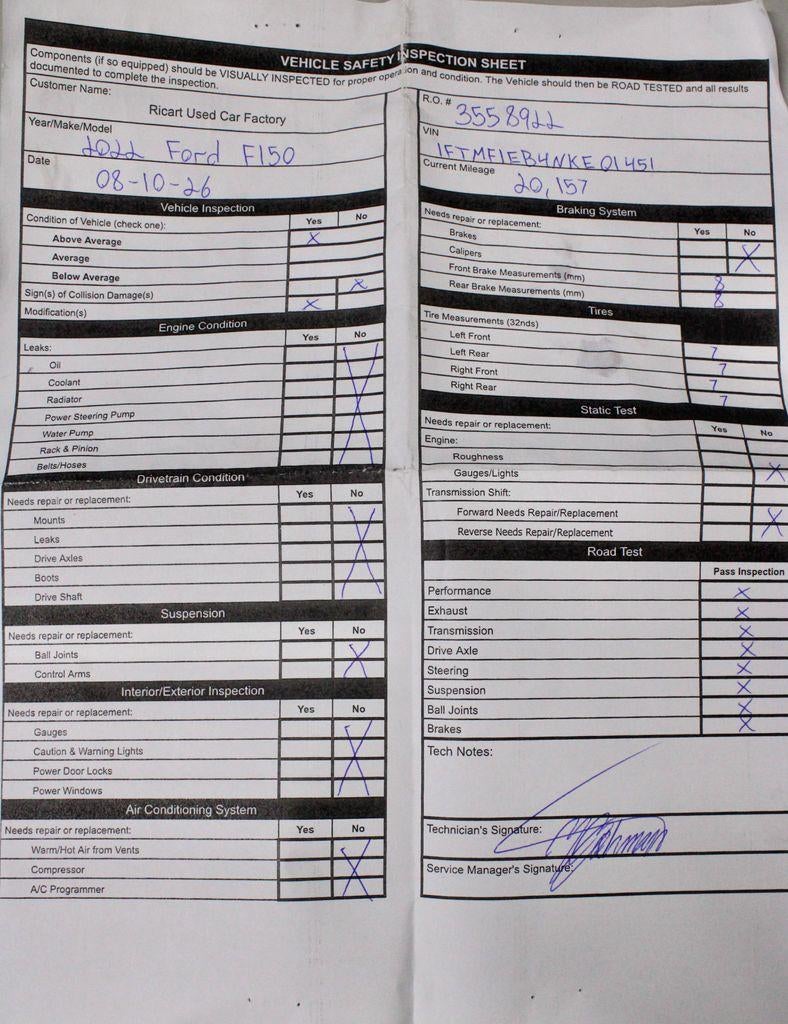 VEHICLE SAFETY INSPECTION SHEET
Components (if so equipped) should be VISUALLY INSPECTED for proper operation and condition. The Vehicle should then be ROAD TESTED and all results
documented to complete the inspection.
Customer Name:
Ricart Used Car Factory
Year/Make/Model
2022 Ford F150
Date
08-10-26
R.O. #
3558922
VIN
1FTMF1EB4NKE01451
Current Mileage
20,157
Vehicle Inspection
Condition of Vehicle (check one): Yes No
Above Average X
Average
Below Average
Sign(s) of Collision Damage(s) X
Modification(s) X
Engine Condition
Leaks: Yes No
Oil
Coolant
Radiator X
Power Steering Pump
Water Pump
Rack & Pinion
Belts/Hoses
Drivetrain Condition
Needs repair or replacement: Yes No
Mounts
Leaks
Drive Axles X
Boots
Drive Shaft
Suspension
Needs repair or replacement: Yes No
Ball Joints X
Control Arms
Interior/Exterior Inspection
Needs repair or replacement: Yes No
Gauges
Caution & Warning Lights X
Power Door Locks
Power Windows
Air Conditioning System
Needs repair or replacement: Yes No
Warm/Hot Air from Vents
Compressor X
A/C Programmer
Braking System
Needs repair or replacement: Yes No
Brakes X
Calipers
Front Brake Measurements (mm) 8
Rear Brake Measurements (mm) 8
Tires
Tire Measurements (32nds)
Left Front 7
Left Rear 7
Right Front 7
Right Rear 7
Static Test
Needs repair or replacement: Yes No
Engine:
Roughness
Gauges/Lights X
Transmission Shift:
Forward Needs Repair/Replacement X
Reverse Needs Repair/Replacement
Road Test
Pass Inspection
Performance X
Exhaust X
Transmission X
Drive Axle X
Steering X
Suspension X
Ball Joints X
Brakes X
Tech Notes:
Technician's Signature:
Service Manager's Signature: